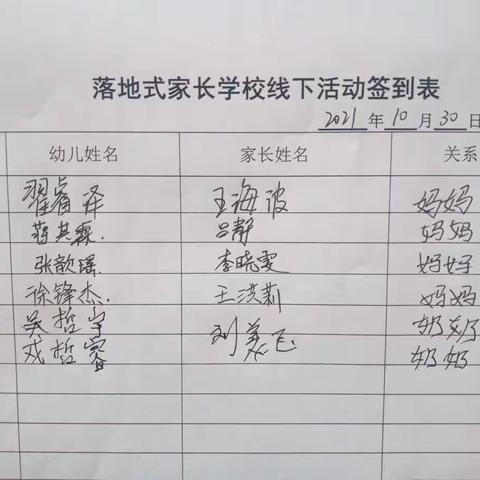 落地式家长学校线下活动签到表
2021年10月30日
幼儿姓名 家长姓名 关系
翟睿泽 王海波 妈妈
蒋其霖. 吕静 妈妈
张歆瑶. 李晓雯 妈妈
徐锋杰. 王洪莉 妈妈
吴哲宇 奶奶
刘美飞
戎哲睿 奶奶